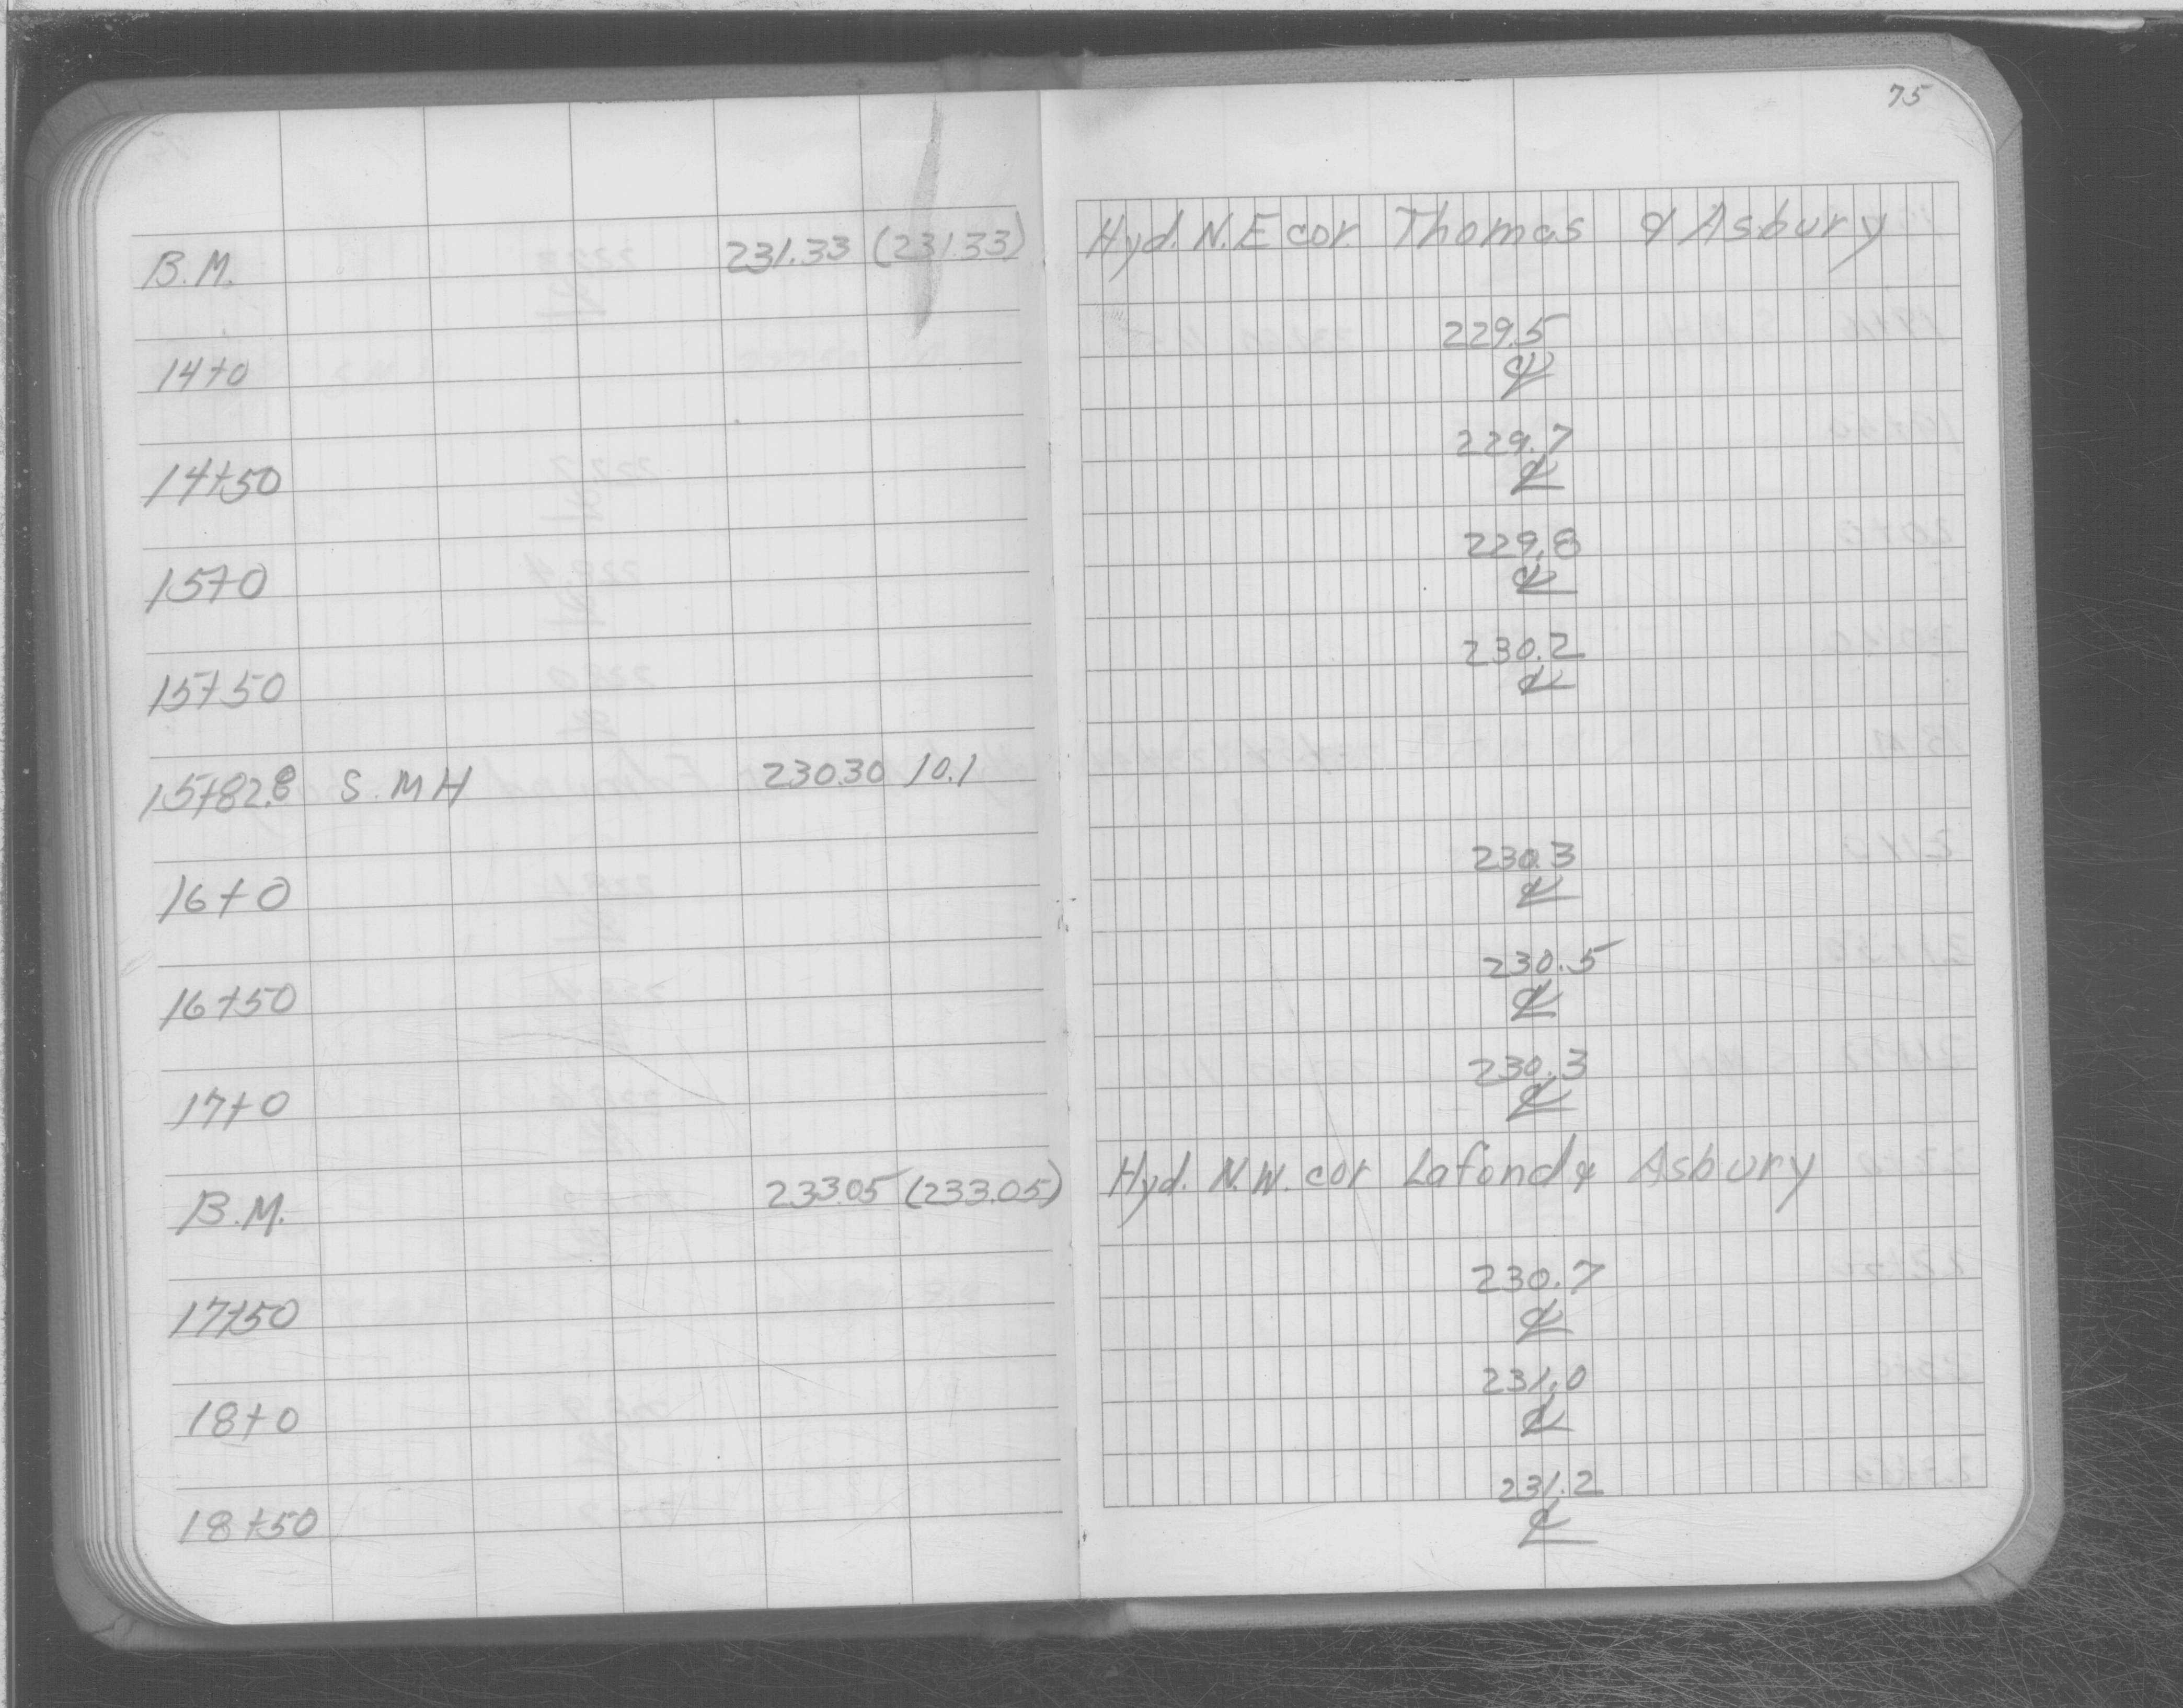 75
B.M. 231.33 (231.33) Hyd. N.E cor. Thomas & Asbury
14+0 229.5
℄
14+50 229.7
℄
15+0 229.8
℄
15+50 230.2
℄
15+82.8 S.MH 230.30 10.1
16+0 230.3
℄
16+50 230.5
℄
17+0 230.3
℄
B.M. 233.05 (233.05) Hyd. N.W. cor Lafond & Asbury
17+50 230.7
℄
18+0 231.0
℄
18+50 231.2
℄